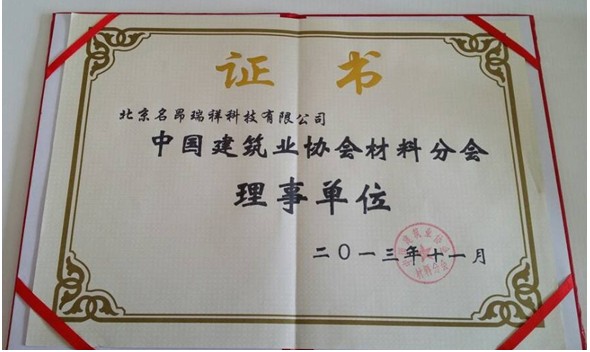 证书
北京名昂瑞祥科技有限公司
中国建筑业协会材料分会
理事单位
二〇一三年十一月
材料分会